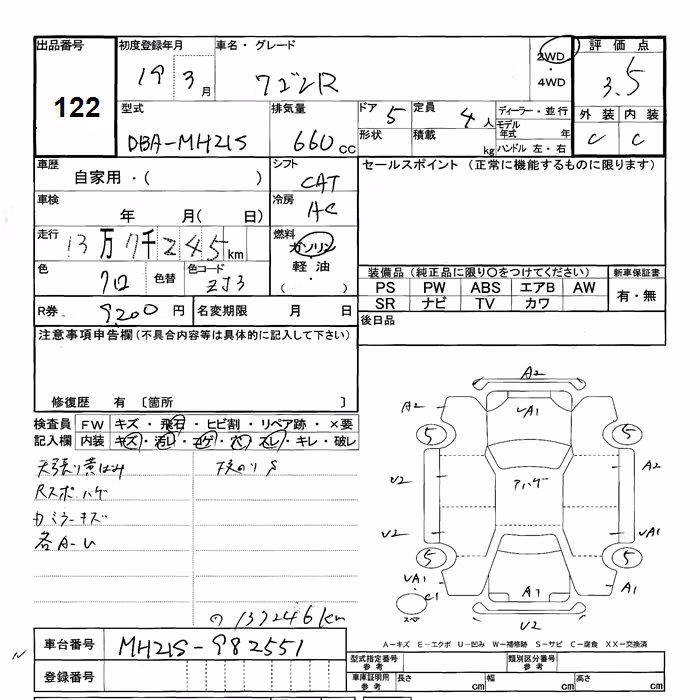 出品番号 初度登録年月 車名・グレード 評価点
122 19 3月 ワゴンR 2WD・4WD 3.5
型式 排気量 ドア 5 定員 4人 ディーラー・並行 外装 内装
DBA-MH21S 660cc 形状 積載 kg モデル年式 年 ハンドル 左・右 C C
車歴 シフト セールスポイント (正常に機能するものに限ります)
自家用・( ) CAT
車検 冷房
年 月( 日) AC
走行 燃料
13万7千245km ガソリン・軽油・( )
色 クロ 色替 色コード ZJ3
装備品 (純正品に限り○をつけてください) 新車保証書
PS PW ABS エアB AW 有・無
SR ナビ TV カワ
R券 9200円 名変期限 月 日 後日品
注意事項申告欄(不具合内容等は具体的に記入して下さい)
修復歴 有 〔箇所 〕
検査員 FW キズ・飛石・ヒビ割・リペア跡・×要
記入欄 内装 キズ・汚レ・コゲ・穴・スレ・キレ・破レ
天張り黄ばみ
Rスポハゲ
カミラーキズ
各A-U
137246km
A2
A2 UA1
5 5
U2 アハゲ A2
U2 UA1
5 5
UA1 C1 A1 A1
スペア U2
A-キズ E-エクボ U-凹み W-補修跡 S-サビ C-腐食 XX-交換済
車台番号 MH21S-982551
登録番号
型式指定番号 参考 類別区分番号 参考
車庫証明用 参考 長さ cm 幅 cm 高さ cm